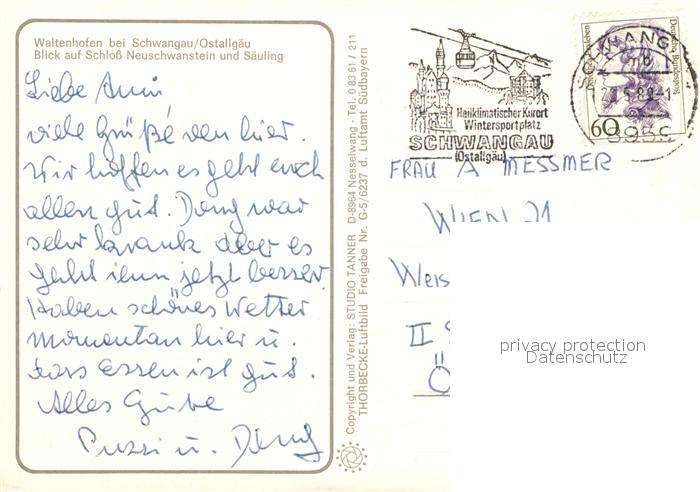 Waltenhofen bei Schwangau/Ostallgäu
Blick auf Schloß Neuschwanstein und Säuling
Liebe Anni,
viele Grüße von hier.
Wir hoffen es geht euch
allen gut. Dong war
sehr krank aber es
geht ihm jetzt besser.
Haben schönes Wetter
momentan hier u.
das Essen ist gut.
Alles Gute
Pussi u. Dong
Copyright und Verlag: STUDIO TANNER D-8964 Nesselwang · Tel. 0 83 61 / 211
THORBECKE-Luftbild Freigabe Nr. G-5/6237 d. Luftamt Südbayern
Heilklimatischer Kurort
Wintersportplatz
SCHWANGAU
(Ostallgäu)
SCHWANGAU
mb
Deutsche Bundespost
60
FRAU A MESSMER
WIEN 21
Weis
II
Ö
privacy protection
Datenschutz